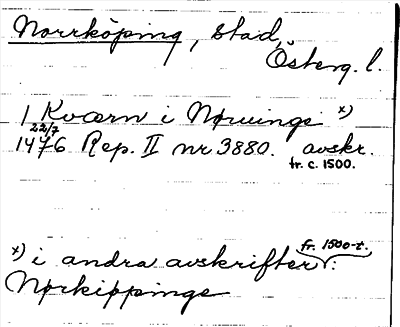 Norrköping, stad,
Österg. l.
1 Kværn i Nørwinge x)
22/7
1476 Rep. II nr 3880. avskr.
fr. c. 1500.
fr. 1500-t.
x) i andra avskrifter:
Nørkippinge